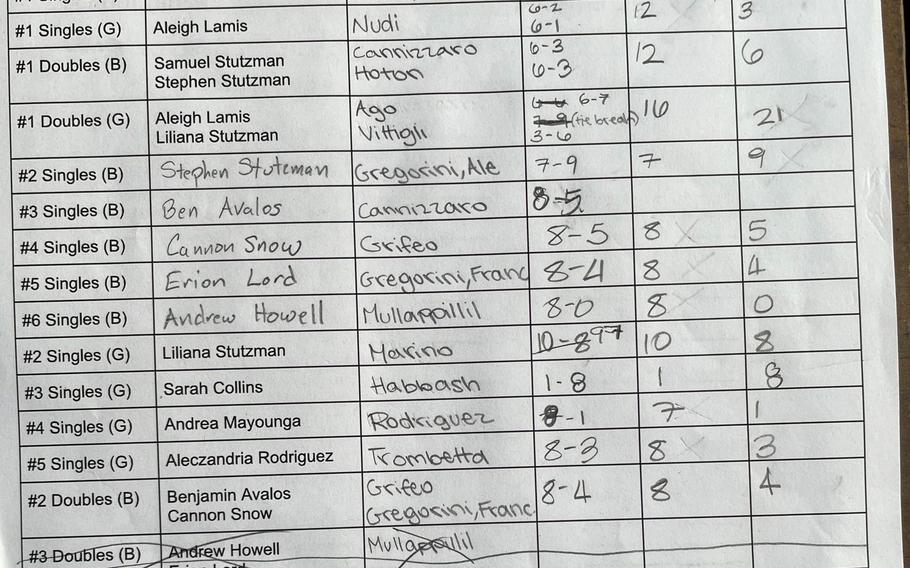 6-2
#1 Singles (G) Aleigh Lamis Nudi 6-1 12 3
#1 Doubles (B) Samuel Stutzman Cannizzaro 6-3 12 6
Stephen Stutzman Hoton 6-3
#1 Doubles (G) Aleigh Lamis Ago 6-6 6-7 16 21
Liliana Stutzman Vittigli 7-9 (tie break)
3-6
#2 Singles (B) Stephen Stutzman Gregorini, Ale 7-9 7 9
#3 Singles (B) Ben Avalos Cannizzaro 8-5
#4 Singles (B) Cannon Snow Grifeo 8-5 8 5
#5 Singles (B) Erion Lord Gregorini, Franc 8-4 8 4
#6 Singles (B) Andrew Howell Mullappillil 8-0 8 0
#2 Singles (G) Liliana Stutzman Marino 10-8 9-7 10 8
#3 Singles (G) Sarah Collins Habbash 1-8 1 8
#4 Singles (G) Andrea Mayounga Rodriguez -1 7 1
#5 Singles (G) Aleczandria Rodriguez Trombetta 8-3 8 3
#2 Doubles (B) Benjamin Avalos Grifeo 8-4 8 4
Cannon Snow Gregorini, Franc
#3 Doubles (B) Andrew Howell Mullappillil